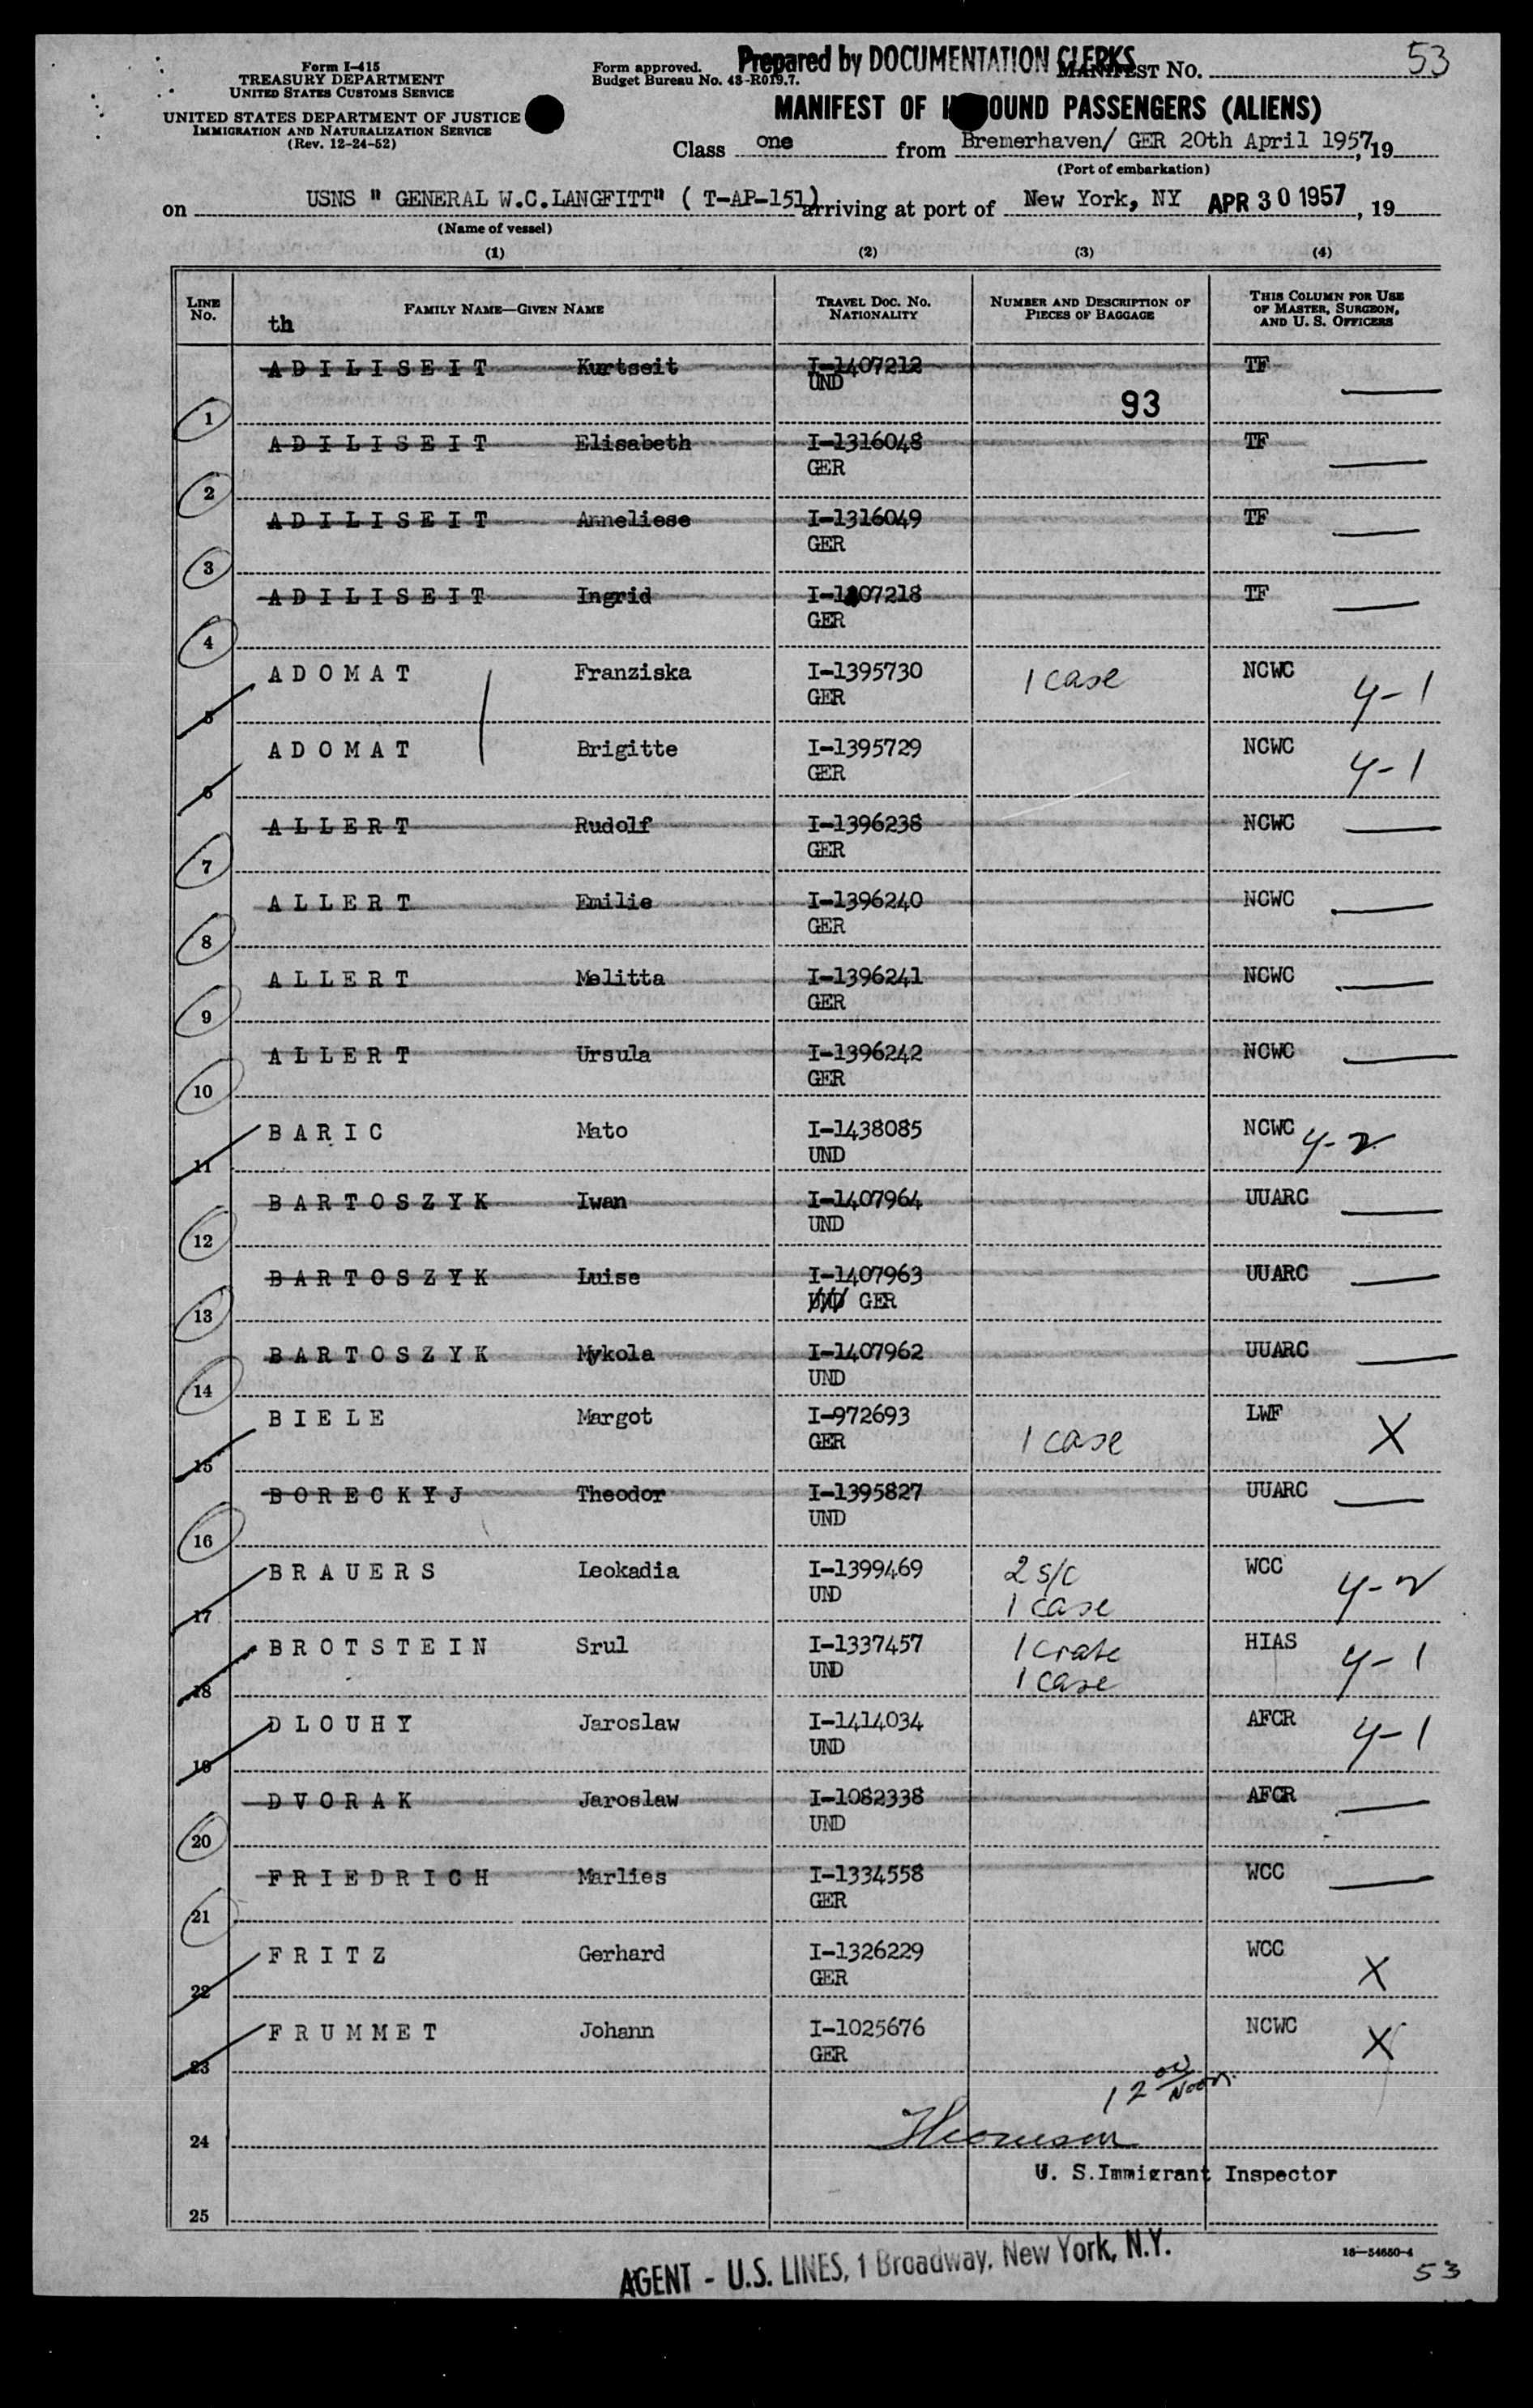 Form I-415
TREASURY DEPARTMENT
UNITED STATES CUSTOMS SERVICE
UNITED STATES DEPARTMENT OF JUSTICE
IMMIGRATION AND NATURALIZATION SERVICE
(Rev. 12-24-52)
Form approved.
Budget Bureau No. 43-R019.7.
Prepared by DOCUMENTATION CLERKS
MANIFEST No. 53
MANIFEST OF INBOUND PASSENGERS (ALIENS)
Class one from Bremerhaven/ GER 20th April 1957, 19
(Port of embarkation)
on USNS " GENERAL W.C.LANGFITT" ( T-AP-151) arriving at port of New York, NY APR 30 1957, 19
(Name of vessel)
(1) (2) (3) (4)
LINE No. FAMILY NAME—GIVEN NAME TRAVEL DOC. NO. NATIONALITY NUMBER AND DESCRIPTION OF PIECES OF BAGGAGE THIS COLUMN FOR USE OF MASTER, SURGEON, AND U. S. OFFICERS
th
1 ADILISEIT Kurtseit I-1407212 TF
UND
93
2 ADILISEIT Elisabeth I-1316048 TF
GER
3 ADILISEIT Anneliese I-1316049 TF
GER
4 ADILISEIT Ingrid I-1407218 TF
GER
5 ADOMAT Franziska I-1395730 1 case NCWC 4-1
GER
6 ADOMAT Brigitte I-1395729 NCWC 4-1
GER
7 ALLERT Rudolf I-1396238 NCWC
GER
8 ALLERT Emilie I-1396240 NCWC
GER
9 ALLERT Melitta I-1396241 NCWC
GER
10 ALLERT Ursula I-1396242 NCWC
GER
11 BARIC Mato I-1438085 NCWC 4-2
UND
12 BARTOSZYK Iwan I-1407964 UUARC
UND
13 BARTOSZYK Luise I-1407963 UUARC
UND GER
14 BARTOSZYK Mykola I-1407962 UUARC
UND
15 BIELE Margot I-972693 LWF X
GER 1 case
16 BORECKYJ Theodor I-1395827 UUARC
UND
17 BRAUERS Leokadia I-1399469 2 s/c WCC 4-2
UND 1 case
18 BROTSTEIN Srul I-1337457 1 crate HIAS 4-1
UND 1 case
19 DLOUHY Jaroslaw I-1414034 AFCR 4-1
UND
20 DVORAK Jaroslaw I-1082338 AFCR
UND
21 FRIEDRICH Marlies I-1334558 WCC
GER
22 FRITZ Gerhard I-1326229 WCC X
GER
23 FRUMMET Johann I-1025676 NCWC X
GER
12 00 Noon
24
U. S. Immigrant Inspector
25
AGENT - U.S. LINES, 1 Broadway, New York, N.Y.
16—54650-4
53